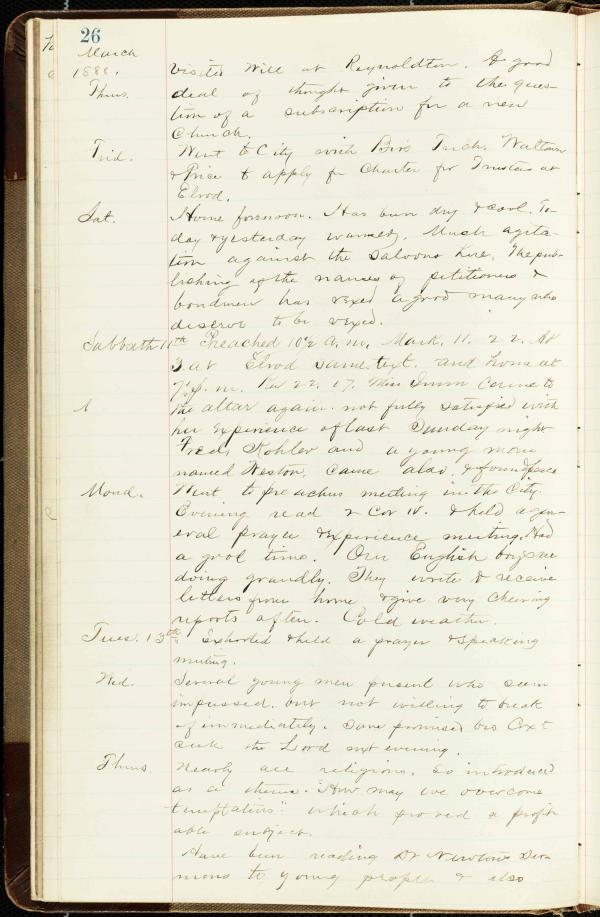 26
March
1888.
Thurs. visited Will at Reynoldton. A good
deal of thought given to the ques-
tion of a subscription for a new
Church.
Frid. Went to City with Bros Trich. Watson
& Price to apply for Charter for Trustees at
Elrod.
Sat. Home forenoon. Has been dry & cool. To-
day & yesterday warmer. Much agita-
tion against the saloons here. The pub-
lishing of the names of petitioners &
bondmen has vexed a good many who
deserve to be vexed.
Sabbath 11th Preached 10½ a.m. Mark. 11. 22. At
3 at Elrod same text. and home at
7½ p.m. Rev 22. 17. Miss came to
the altar again. not fully satisfied with
her experience of last Sunday night
Kohler and a young man
named Weston. came also. & found peace
Mond. Went to preachers meeting in the City.
Evening read 2 Cor IV. & held a gen-
eral prayer & experience meeting. Had
a good time. Our English boys are
doing grandly. They write & receive
letters from home & give very cheering
reports often. Cold weather.
Tues. 13th Exhorted & held a prayer & speaking
meeting.
Wed. Several young men present who seem
impressed. but not willing to break
off immediately. promised to
seek the Lord next evening.
Thurs. Nearly all religious. So introduced
as a theme. "How may we overcome
temptations" which proved a profit-
able subject.
Have been reading Dr Newtons Ser-
mons to young people & also